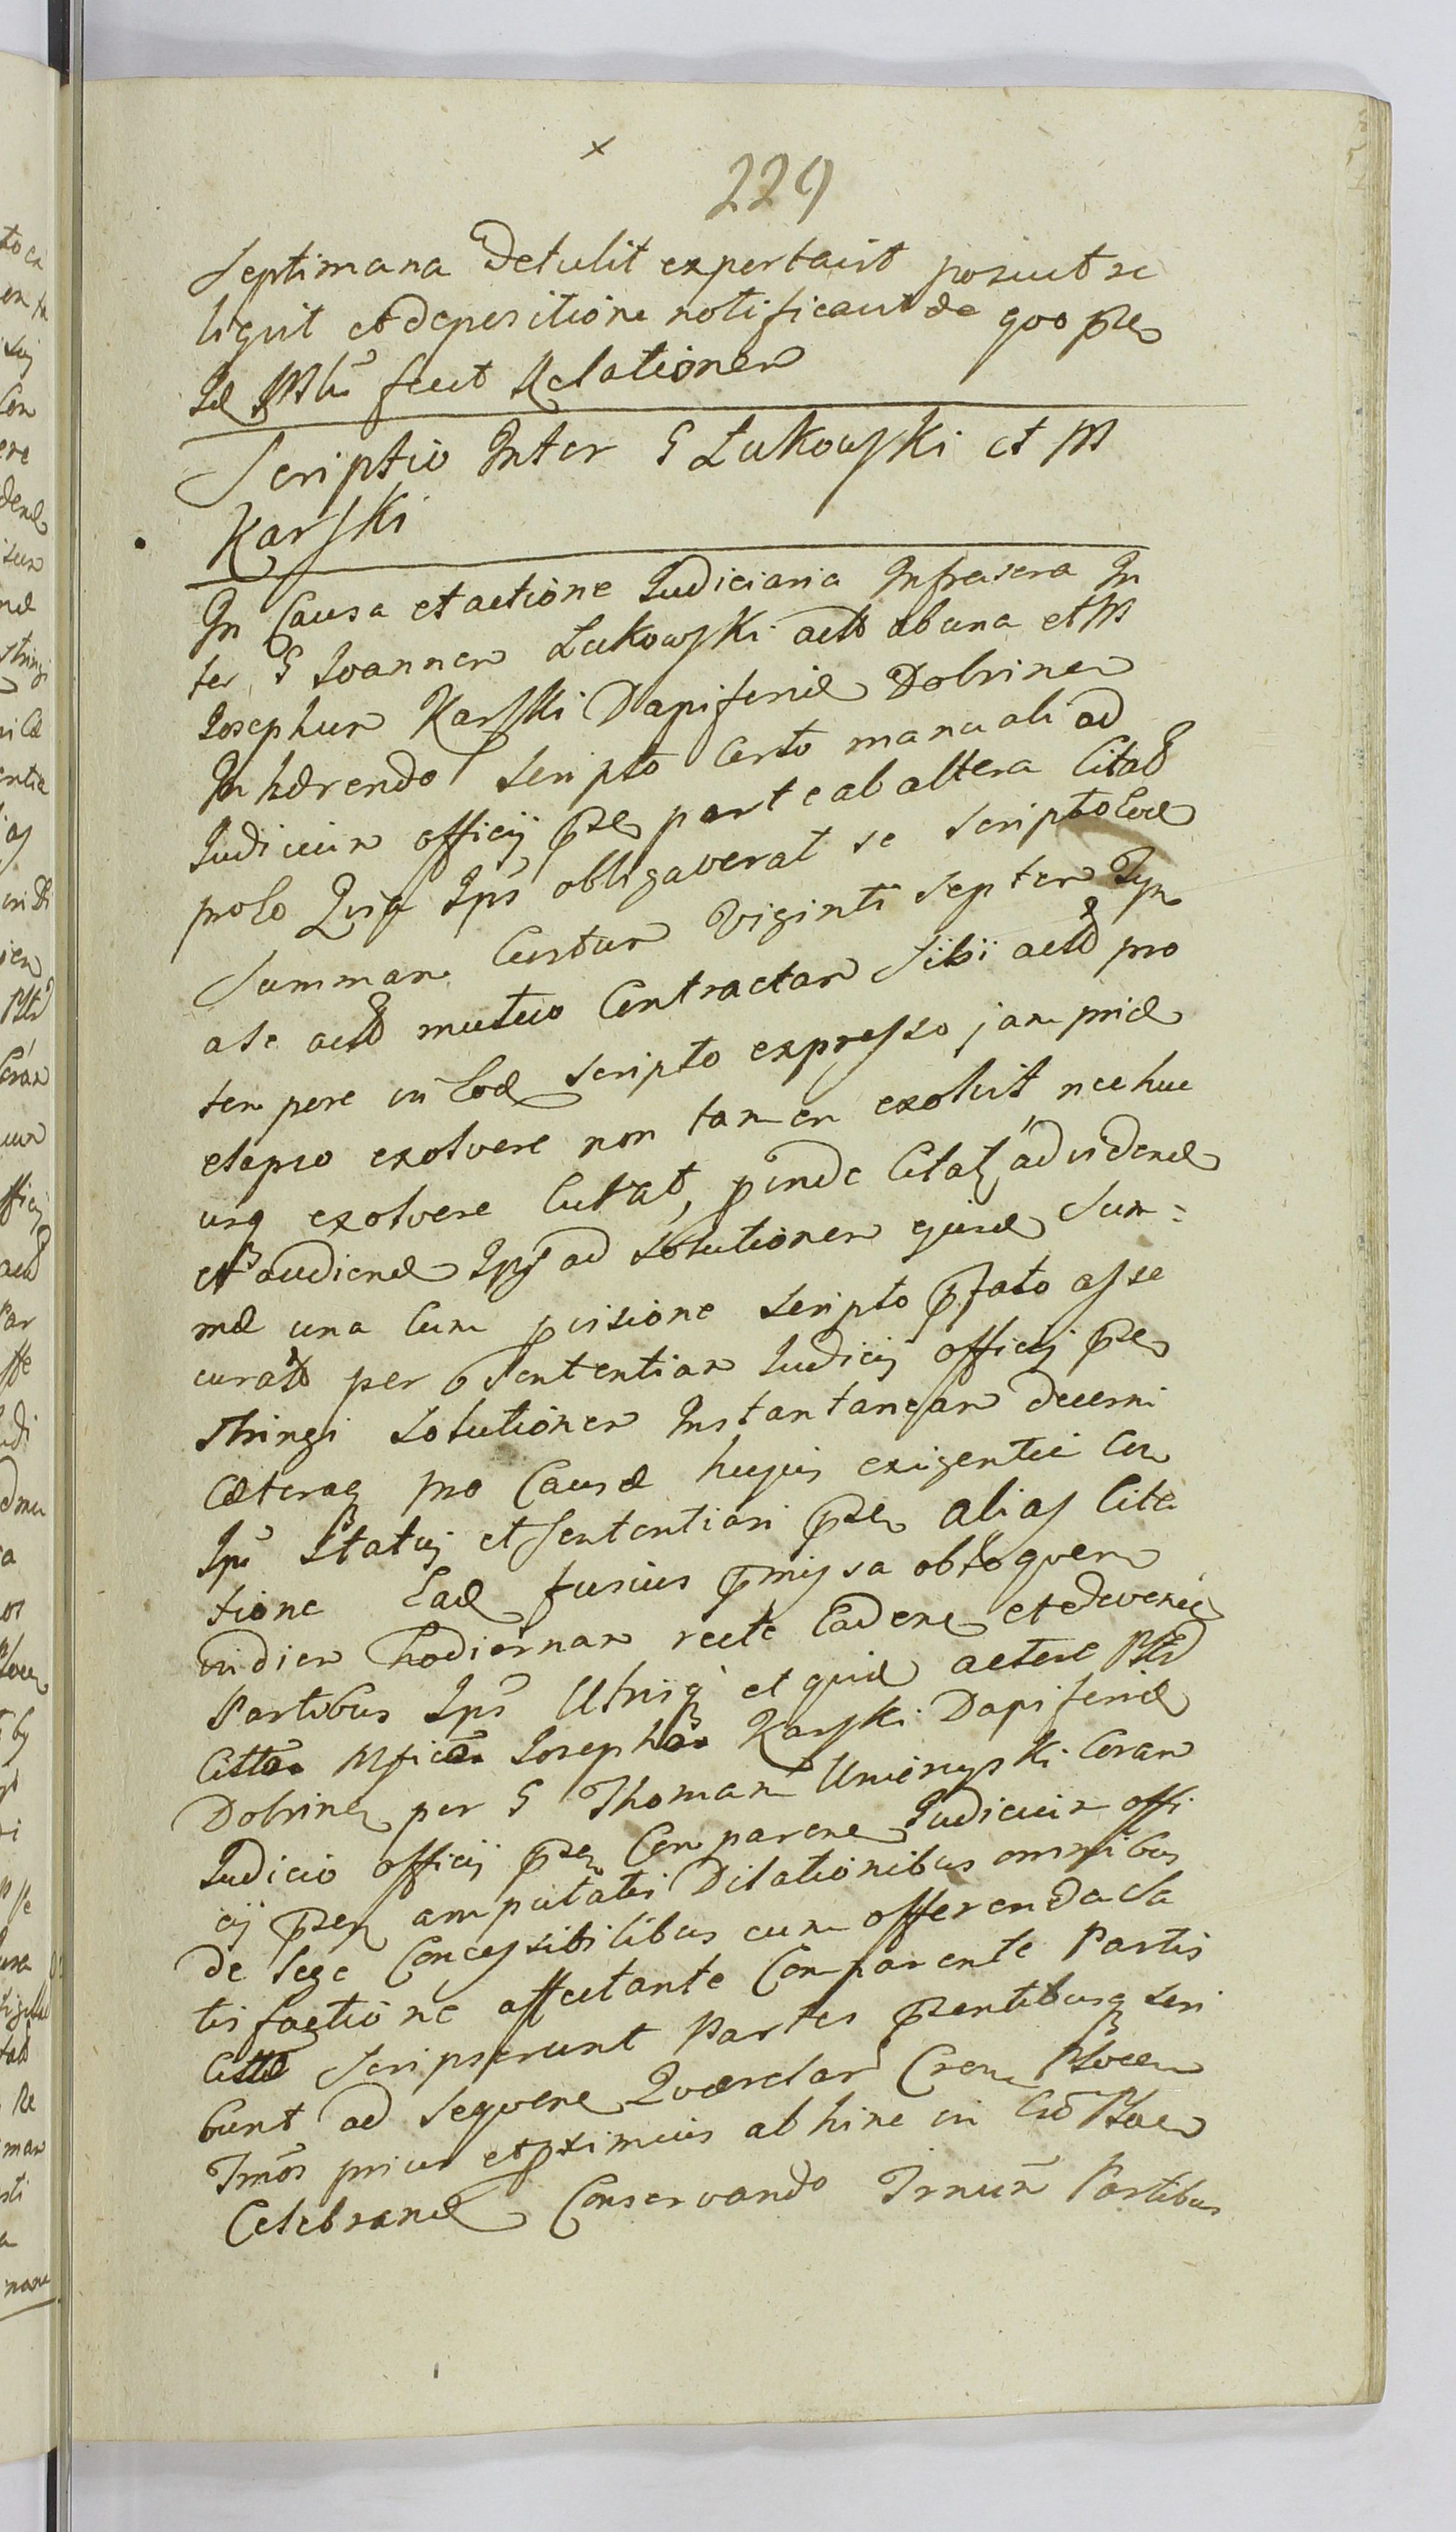 x
229
Septimana detulit exportavit posuit re
liquit et depositione notificavit de quo prn
Id Mtr fecit Relationem
Scriptio Inter G Łukowski et M
Karski
In Causa et actione Judiciaria Infrascra In
ter G Joannem Łukowski act ab una et M
Josephum Karski Dapiferid Dobrinen
Inhærendo scripto certo manuali ad
Judicium officij prn parte ab altera Citat
polo Quia Ips obligaverat se scripto eod
Summam Certum Viginti septem
a se act mutuo Contractam sibi act pro
tempore in eod scripto expresso jam prid
elapso exolvere non tamen exolvit nec huc
usq exolvere Curat, pinde Citat ad vidend
et audiend Ips ad solutionem ejusd Sum=
mæ una cum pvisione scripto pfato asse
curat per Sententiam Judicij officij prn
stringi solutionem Instantaneam decerni
Cæteraq pro Causæ hujus exigentia Con
Ips Statuj et sententiari prn alias Cita
tione Ead fusius pmissa ob quem
in diem hodiernam recte Caden et deveni
Partibus Ips Utrisq et quid actore
Citto Mficm Joseph Karski Dapiferid
Dobrinen per G Thomam Umienyski Coram
Judicio officij prn Comparen Judicium offi
cij prn amputatis Dilationibus omnibus
de lege Concessibilibus cum offerenda Sa
tisfactione affectante Comparente Partis
Citt Scripserunt Partes prntibusq scri
bunt ad sequen Quærelar Crem Plocen
Tmos prius et pximius ab hinc in Cro Plocen
Celebrand Conservando Trnum Partibus